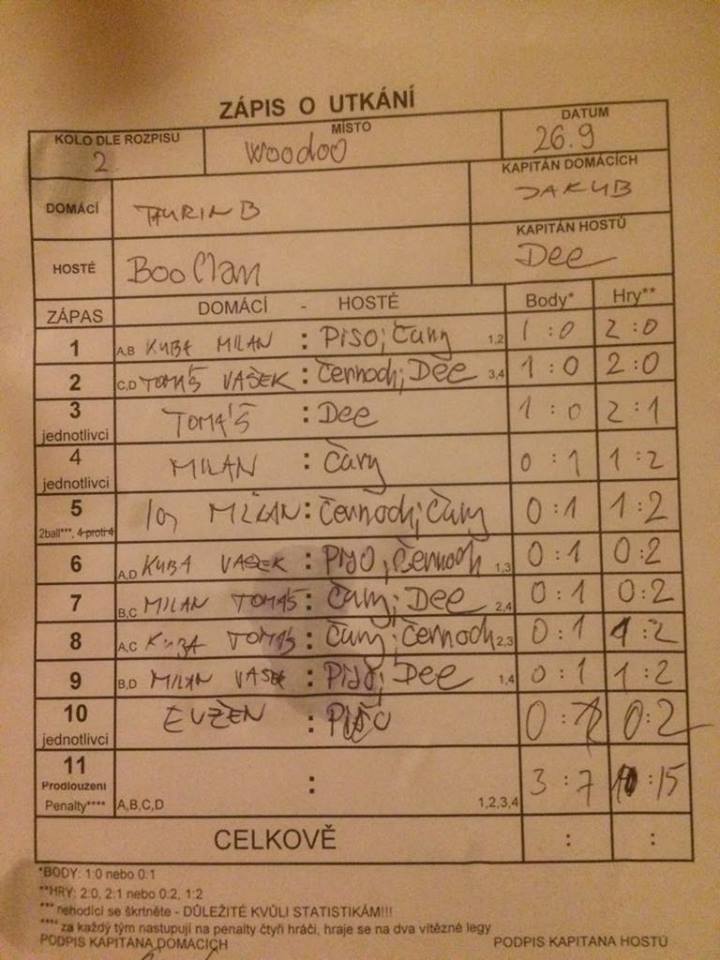 ZÁPIS O UTKÁNÍ
KOLO DLE ROZPISU MÍSTO DATUM
2 WOODOO 26.9
DOMÁCÍ TAURIN B KAPITÁN DOMÁCÍCH JAKUB
HOSTÉ Boo Clan KAPITÁN HOSTŮ Dee
ZÁPAS DOMÁCÍ - HOSTÉ Body* Hry**
1 A,B KUBA MILAN : Piso; Čary 1,2 1 : 0 2 : 0
2 C,D TOMÁŠ VAŠEK : Černoch; Dee 3,4 1 : 0 2 : 0
3 jednotlivci TOMÁŠ : Dee 1 : 0 2 : 1
4 jednotlivci MILAN : Čary 0 : 1 1 : 2
5 MILAN : Černoch; Čary 0 : 1 1 : 2
2ball***, 4 proti 4
6 A,D KUBA VAŠEK : Piso; Černoch 1,3 0 : 1 0 : 2
7 B,C MILAN TOMÁŠ : Čary; Dee 2,4 0 : 1 0 : 2
8 A,C KUBA TOMÁŠ : Čary; Černoch 2,3 0 : 1 1 : 2
9 B,D MILAN VAŠEK : Piso; Dee 1,4 0 : 1 1 : 2
10 jednotlivci EVŽEN : Piso 0 : 1 0 : 2
11 : 3 : 7 10 : 15
Prodloužení
Penalty**** A,B,C,D 1,2,3,4
CELKOVĚ : :
*BODY: 1:0 nebo 0:1
**HRY: 2:0, 2:1 nebo 0:2, 1:2
*** nehodící se škrtněte - DŮLEŽITÉ KVŮLI STATISTIKÁM!!!
**** za každý tým nastupují na penalty čtyři hráči, hraje se na dva vítězné legy
PODPIS KAPITÁNA DOMÁCÍCH PODPIS KAPITÁNA HOSTŮ